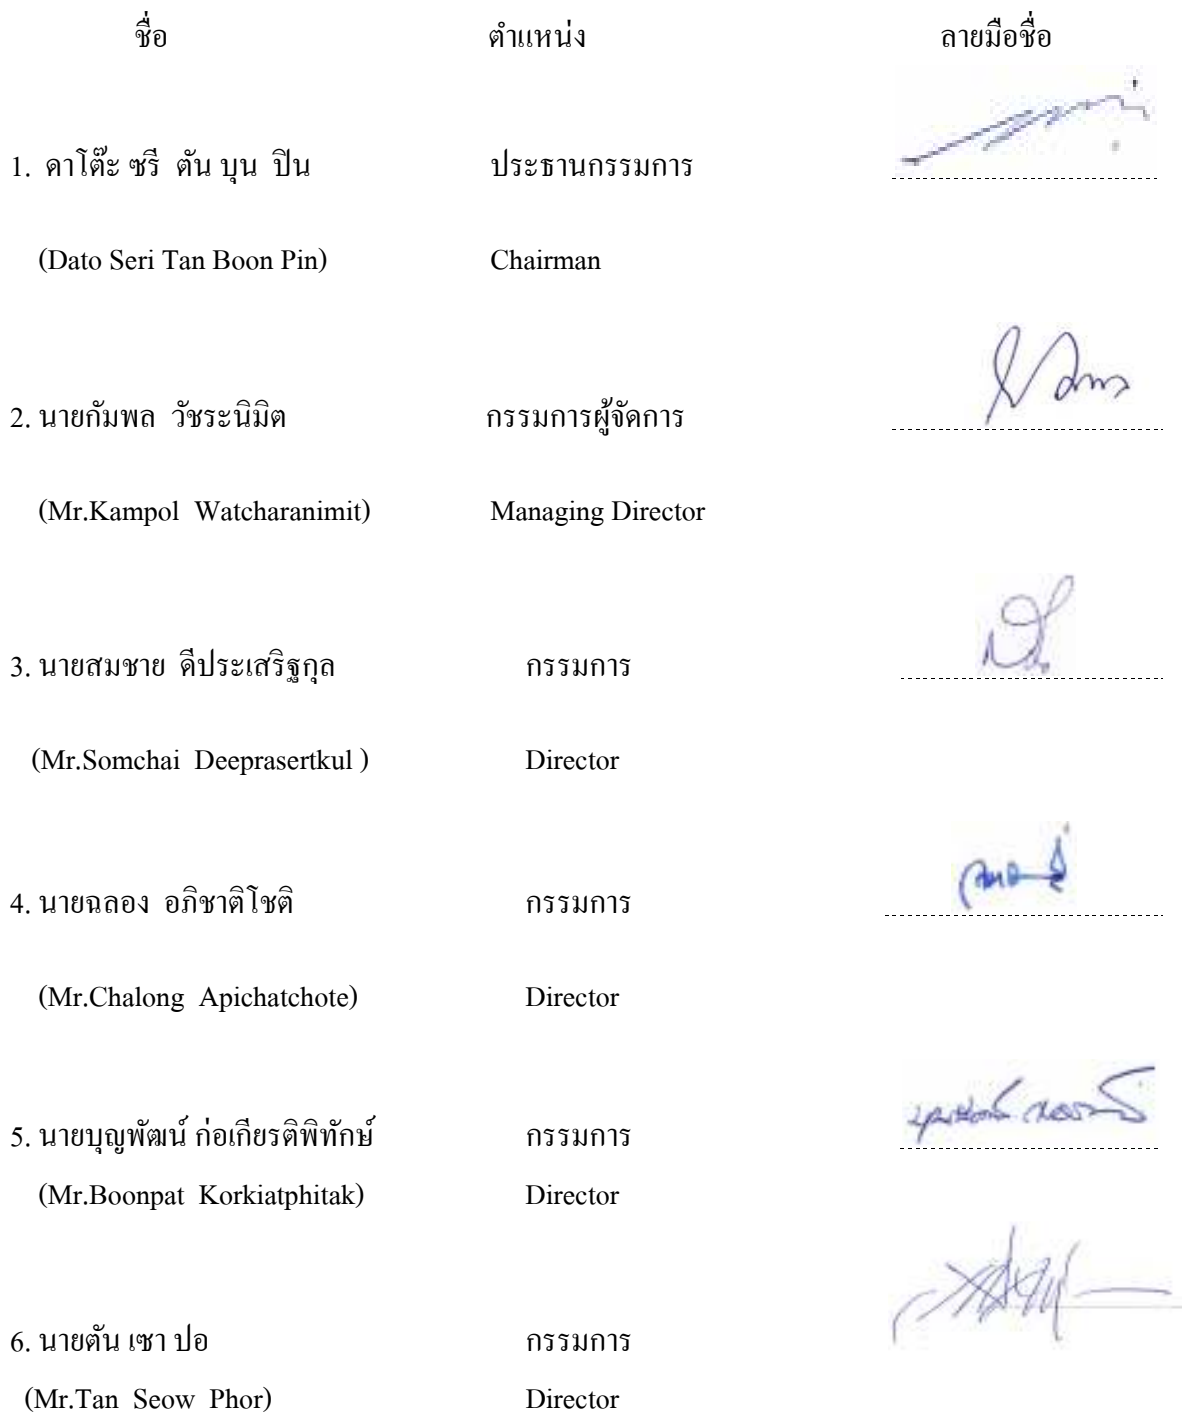 ชื่อ ตำแหน่ง ลายมือชื่อ
1. ดาโต๊ะ ซรี ตัน บุน ปิน ประธานกรรมการ
(Dato Seri Tan Boon Pin) Chairman
2. นายกัมพล วัชระนิมิต กรรมการผู้จัดการ
(Mr.Kampol Watcharanimit) Managing Director
3. นายสมชาย ดีประเสริฐกุล กรรมการ
(Mr.Somchai Deeprasertkul ) Director
4. นายฉลอง อภิชาติโชติ กรรมการ
(Mr.Chalong Apichatchote) Director
5. นายบุญพัฒน์ ก่อเกียรติพิทักษ์ กรรมการ
(Mr.Boonpat Korkiatphitak) Director
6. นายตัน เซา ปอ กรรมการ
(Mr.Tan Seow Phor) Director